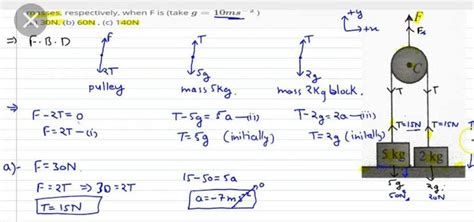 masses, respectively, when F is (take g = 10ms⁻²)
30N, (b) 60N , (c) 140N
+y
+x
⇒ F.B.D
F
2T
pulley
T
5g
mass 5kg
T
2g
mass 2kg block.
F
C
T
T
T=15N
T=15N
5 kg
2 kg
5g
50N
2g
20N
⇒ F-2T=0
F=2T -(i)
T-5g=5a -(ii)
T=5g (initially)
T-2g=2a -(iii)
T=2g (initially)
a)- F=30N.
F=2T ⇒ 30=2T
T=15N
15-50=5a
a=-7ms⁻²
0